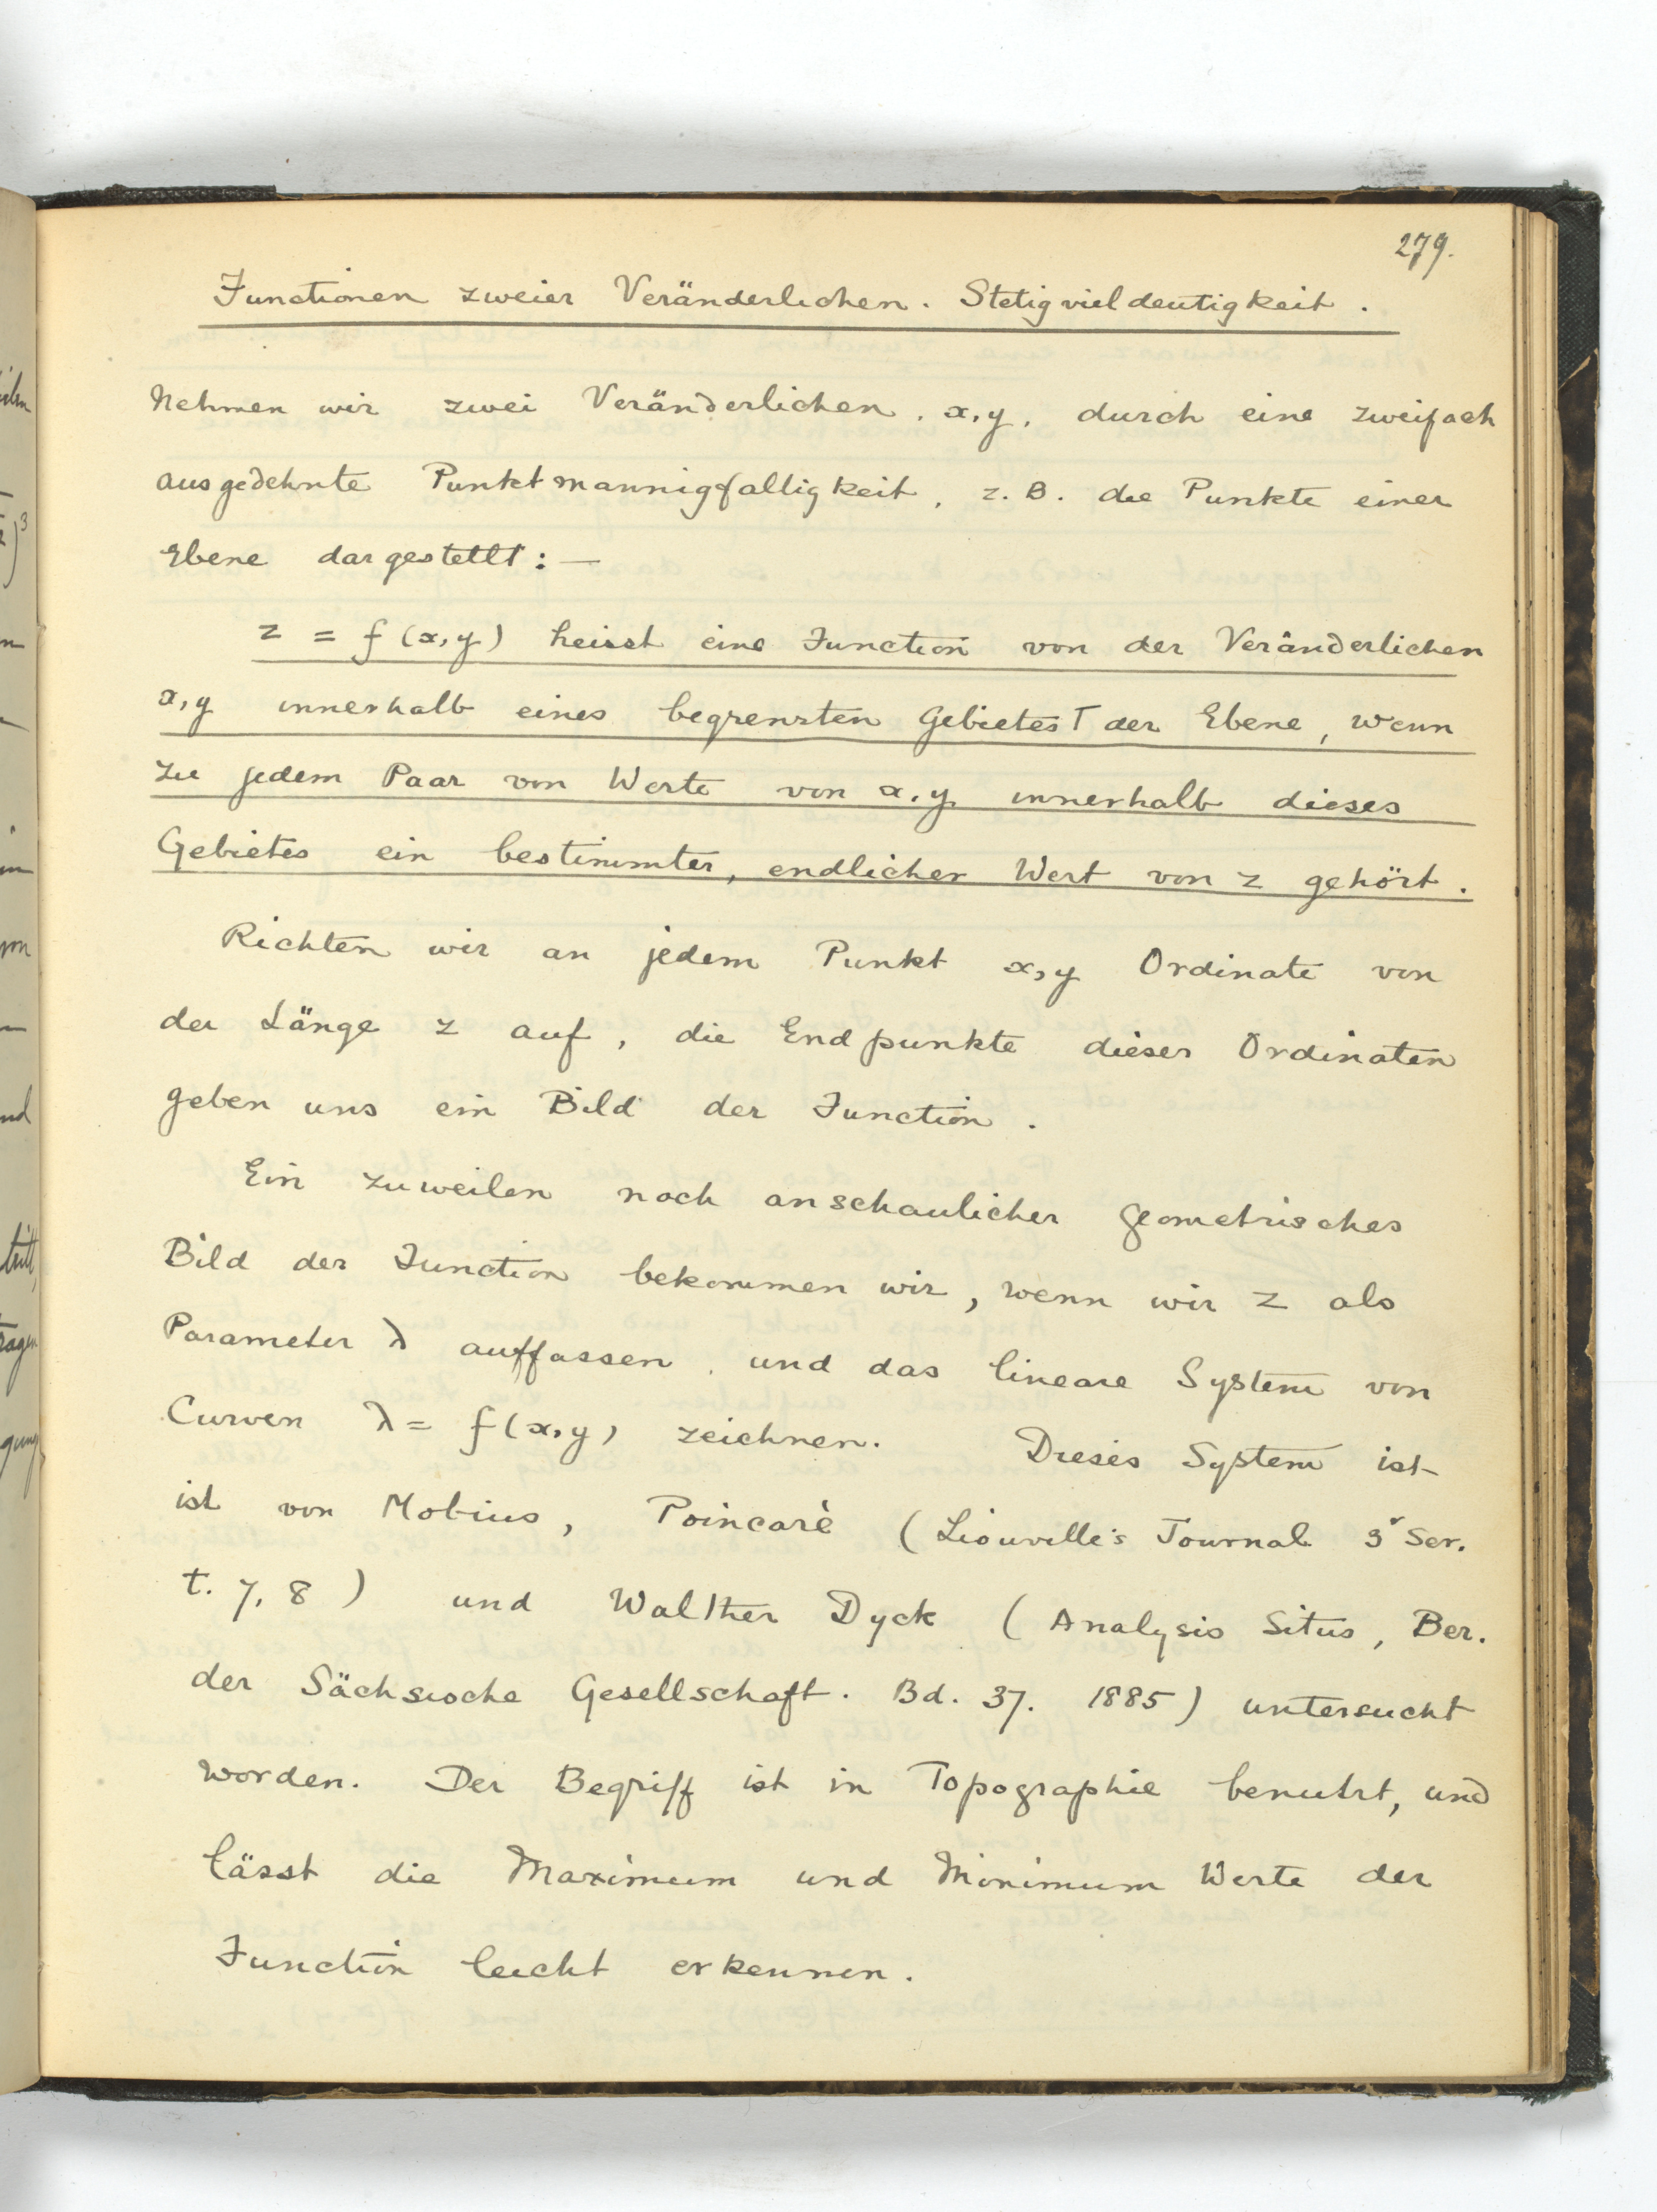 279.
Functionen zweier Veränderlichen. Stetigvieldeutigkeit.
Nehmen wir zwei Veränderlichen, x,y, durch eine zweifach
ausgedehnte Punktmannigfaltigkeit, z.B. die Punkte einer
Ebene dargestellt: —
z = f(x,y) heisst eine Function von der Veränderlichen
x,y innerhalb eines begrenzten Gebietes T der Ebene, wenn
zu jedem Paar von Werte von x,y innerhalb dieses
Gebietes ein bestimmter, endlicher Wert von z gehört.
Richten wir an jedem Punkt x,y Ordinate von
der Länge z auf, die Endpunkte dieser Ordinaten
geben uns ein Bild der Function.
Ein zuweilen noch anschaulicher geometrisches
Bild der Function bekommen wir, wenn wir z als
Parameter λ auffassen, und das lineare System von
Curven λ = f(x,y) zeichnen. Dieses System ist
ist von Mobius, Poincarè (Liouville's Journal 3ʳ Ser.
t. 7, 8) und Walther Dyck (Analysis Situs, Ber.
der Sächsische Gesellschaft. Bd. 37. 1885) untersucht
worden. Der Begriff ist in Topographie benutzt, und
lässt die Maximum und Minimum Werte der
Function leicht erkennen.